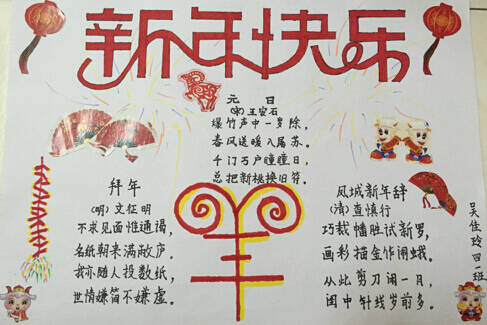 新年快乐
元日
(宋)王安石
爆竹声中一岁除,
春风送暖入屠苏。
千门万户曈曈日,
总把新桃换旧符。
拜年
(明)文征明
不求见面惟通谒,
名纸朝来满敝庐。
我亦随人投数纸,
世情嫌简不嫌虚。
羊
凤城新年辞
(清)查慎行
巧裁幡胜试新罗,
画彩描金作闹蛾。
从此剪刀闲一月,
闺中针线岁前多。
吴佳玲 四一班